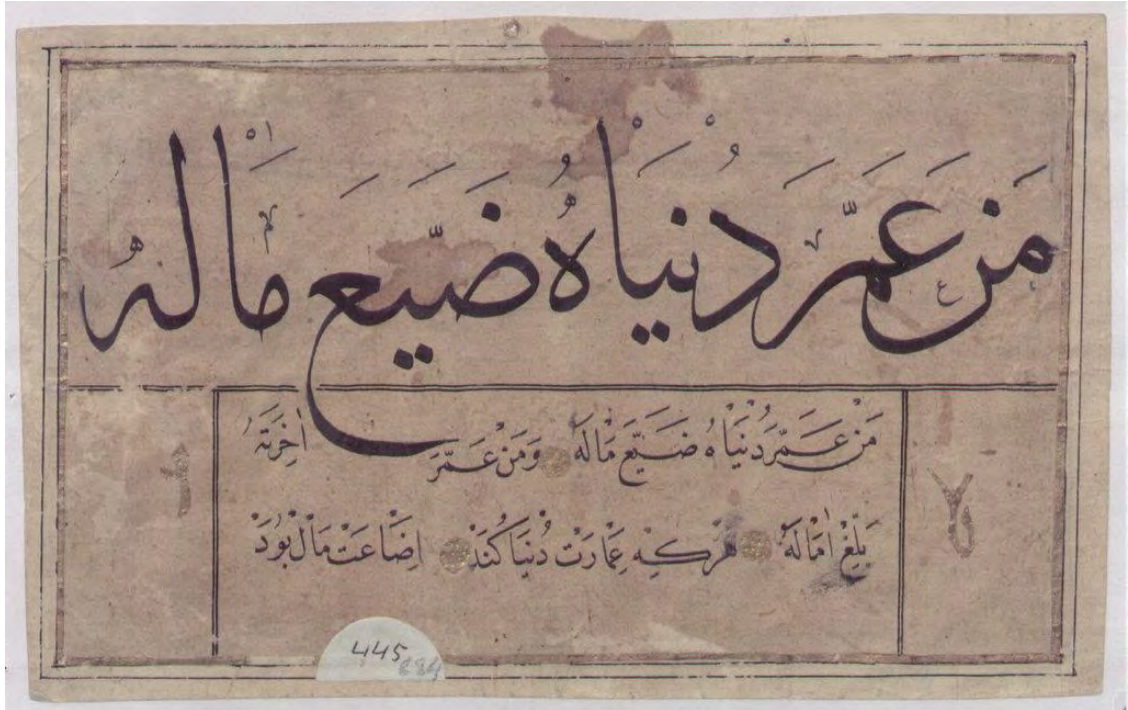 مَن عَمَّرَ دُنيَاهُ ضَيَّعَ مَالَهُ
مَنْ عَمَّرَ دُنْيَاهُ ضَيَّعَ مَالَهُ وَمَنْ عَمَّرَ اٰخِرَتَهُ
بَلَغَ اٰمَالَهُ هَرْكِه عِمَارَتْ دُنْيَا كُنَدْ اِضَاعَتْ مَالْ بُوَدْ
445